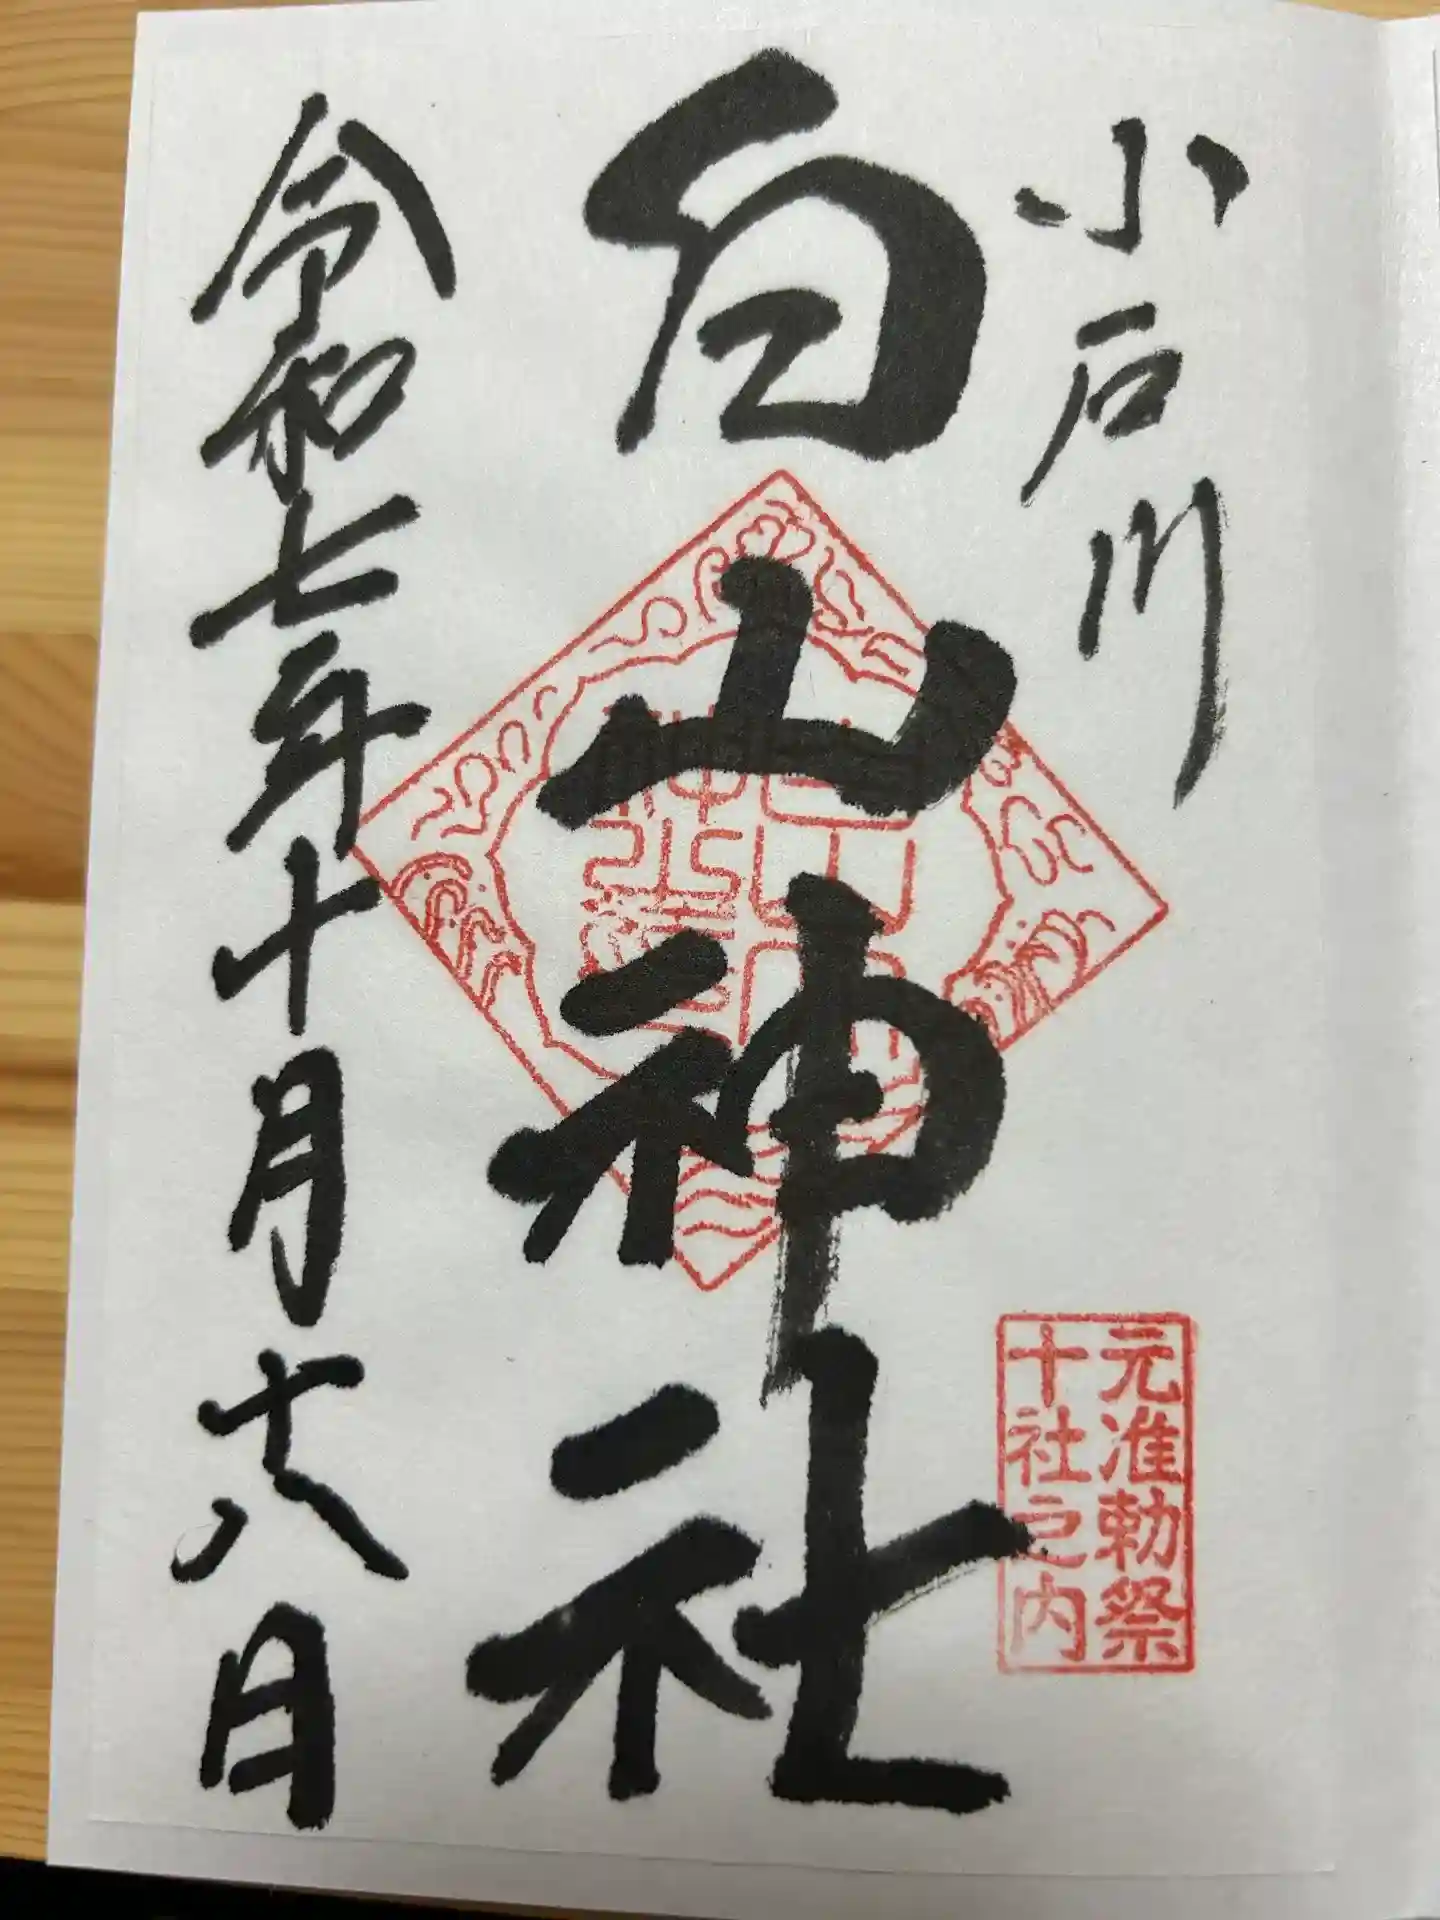 小石川
白山神社
元准勅祭
十社之内
令和七年十月十八日